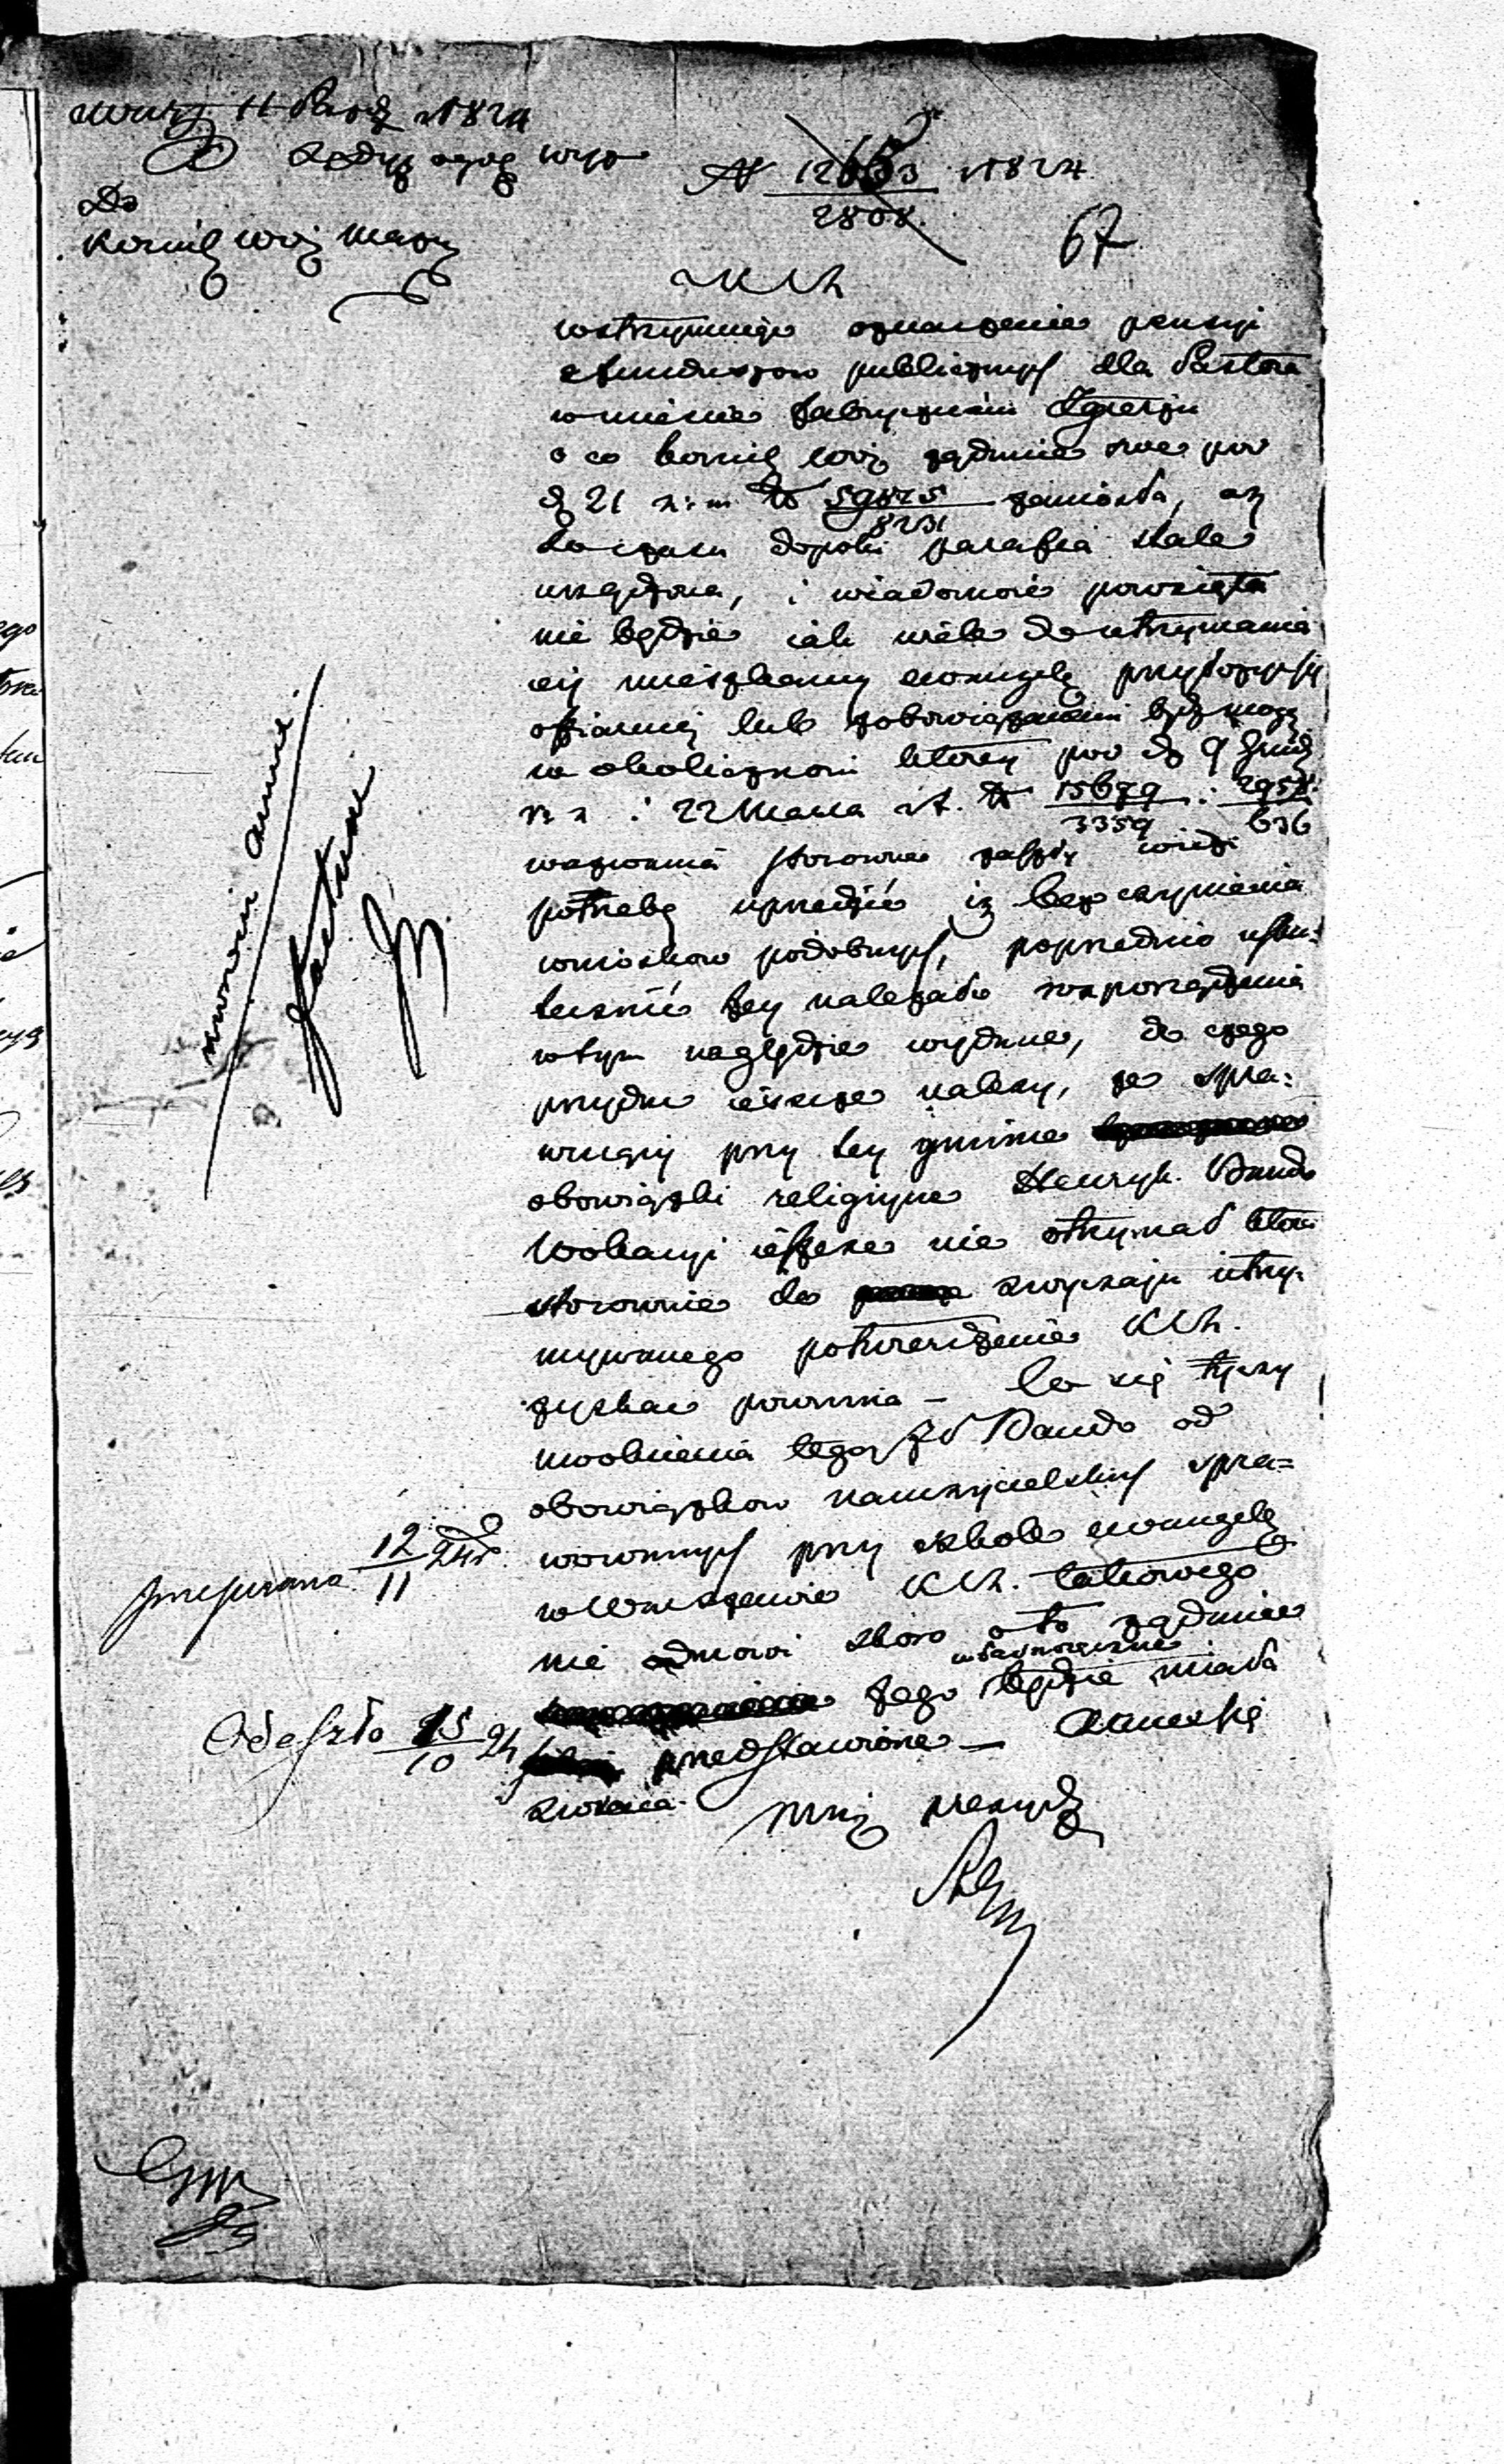 11 1824
Do
Komis Woj Mazow
N 12653 1824
2808
67
KRz
wstrzymuje oznaczenie pensyi
z funduszow publicznych dla Pastora
w mieście fabrycznem Zgierzu
o co komis woj żądanie swe pod
d 21 z: m. N 59825 zaniosła, aż
8231
do czasu dopoki parafia stale
urządzona, i wiadomość powzięta
nie będzie iak wiele do utrzymania
iey mieszkańcy ewangel przyłożyć się
ofiarmi lub zobowiązaniami być mogą
w okoliczności ktorey pod d 9 Grud
i 22 Marca N 15679 i 2958
3359 636
wezwania stosowne zaszły widzi
potrzebę uprzedzić iż bez czynienia
wnioskow podobnych, poprzednio usku-
tecznić Jey należało rozporządzenia
w tym względzie wydane, do czego
przydać ieszcze należy, że spra-
wuiący przy tey gminie
obowiązki religiyne Henryk Bando
Wokacyi ieszcze nie otrzymał ktora
stosownie do zwyczaju utrzy-
mywanego potwierdzenie KRz.
zyskać powinna – Co się tyczy
uwolnienia tegoż JP Bando od
obowiązkow nauczycielskich spra-
wowanych przy szkole ewangel
w Warszawie KRz. takowego
nie odmowi skoro o to żądanie
własnoręczne
Jego będzie miała
przedstawione – Anneksa
zwraca.
Mini prezyd
przepisano 12/11 24 r.
Odeszło 15/10 24